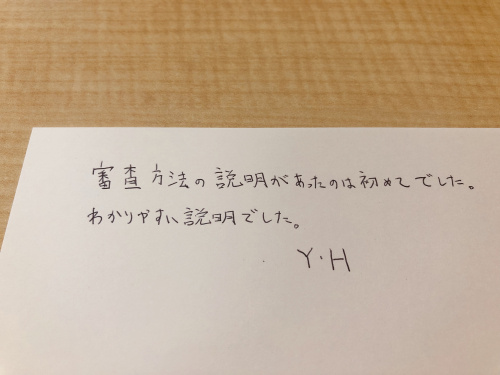 審査方法の説明があったのは初めてでした。
わかりやすい説明でした。
Y・H